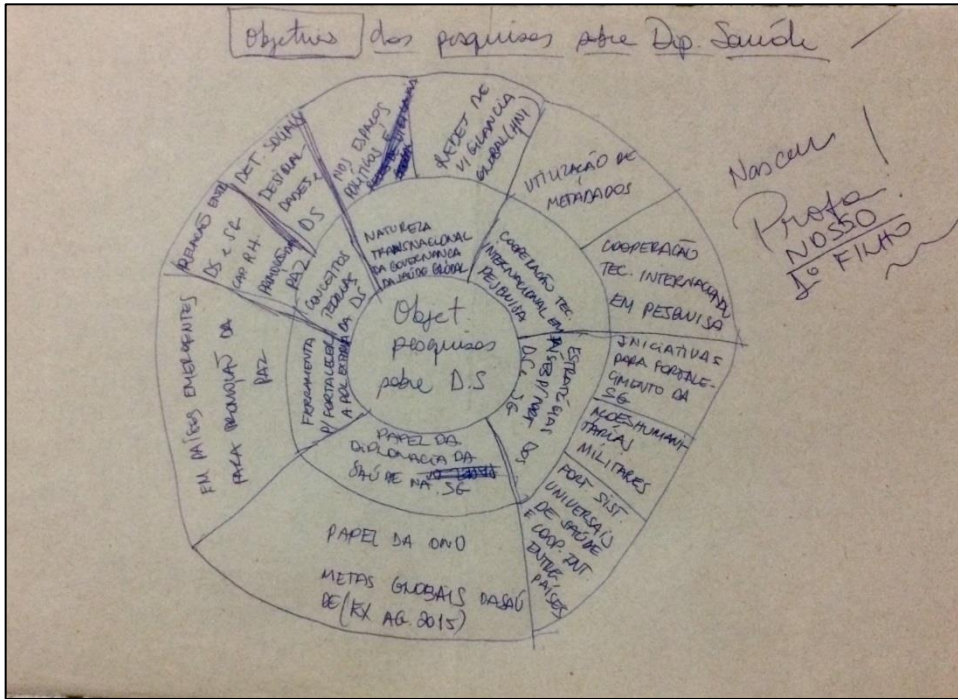 Objetivos das pesquisas sobre Dip. Saúde
Nasceu!
Profa.
NOSSO
1º FILHO
Objet.
pesquisas
sobre D.S
NATUREZA
TRANSNACIONAL
DA GOVERNANÇA
DA SAÚDE GLOBAL
COOPERAÇÃO TEC.
INTERNACIONAL EM
PESQUISA
ESTRATÉGIAS
DOS
PAÍSES P/
D.C. SG
PAPEL DA
DIPLOMACIA DA
SAÚDE NA SG
FERRAMENTA
P/ FORTALECER
A POL. EXTERNA
CONCEITOS
TEÓRICOS
DA DS
NOS ESPAÇOS
POLÍTICOS E
REDES DE
VIGILANCIA
GLOBAL (HINI)
UTILIZAÇÃO DE
METADADOS
COOPERAÇÃO
TEC. INTERNACIONAL
EM PESQUISA
INICIATIVAS
PARA FORTALE-
CIMENTO DA
SG
AÇÕES HUMANI
TÁRIAS
MILITARES
FORT. SIST.
UNIVERSAIS
DE SAÚDE
E COOP. INT
ENTRE
PAÍSES
PAPEL DA ONU
METAS GLOBAIS DA SAÚ
DE (EX AG. 2015)
EM PAÍSES EMERGENTES
PARA PROMOÇÃO DA
PAZ
RELAÇÃO ENTRE
DS e SG
CAP R.H.
PROMOÇÃO DA
PAZ
DET. SOCIAIS
DESIGUAL
DADES e
DS